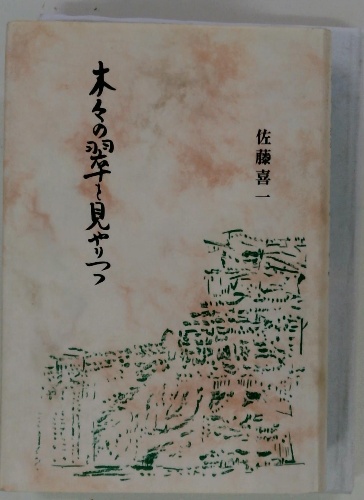 佐藤喜一
木々の翠を見やりつつ